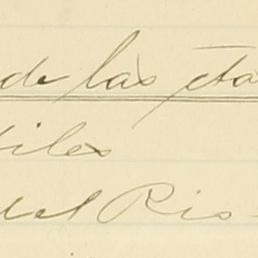 de las eta
iles
del Rio